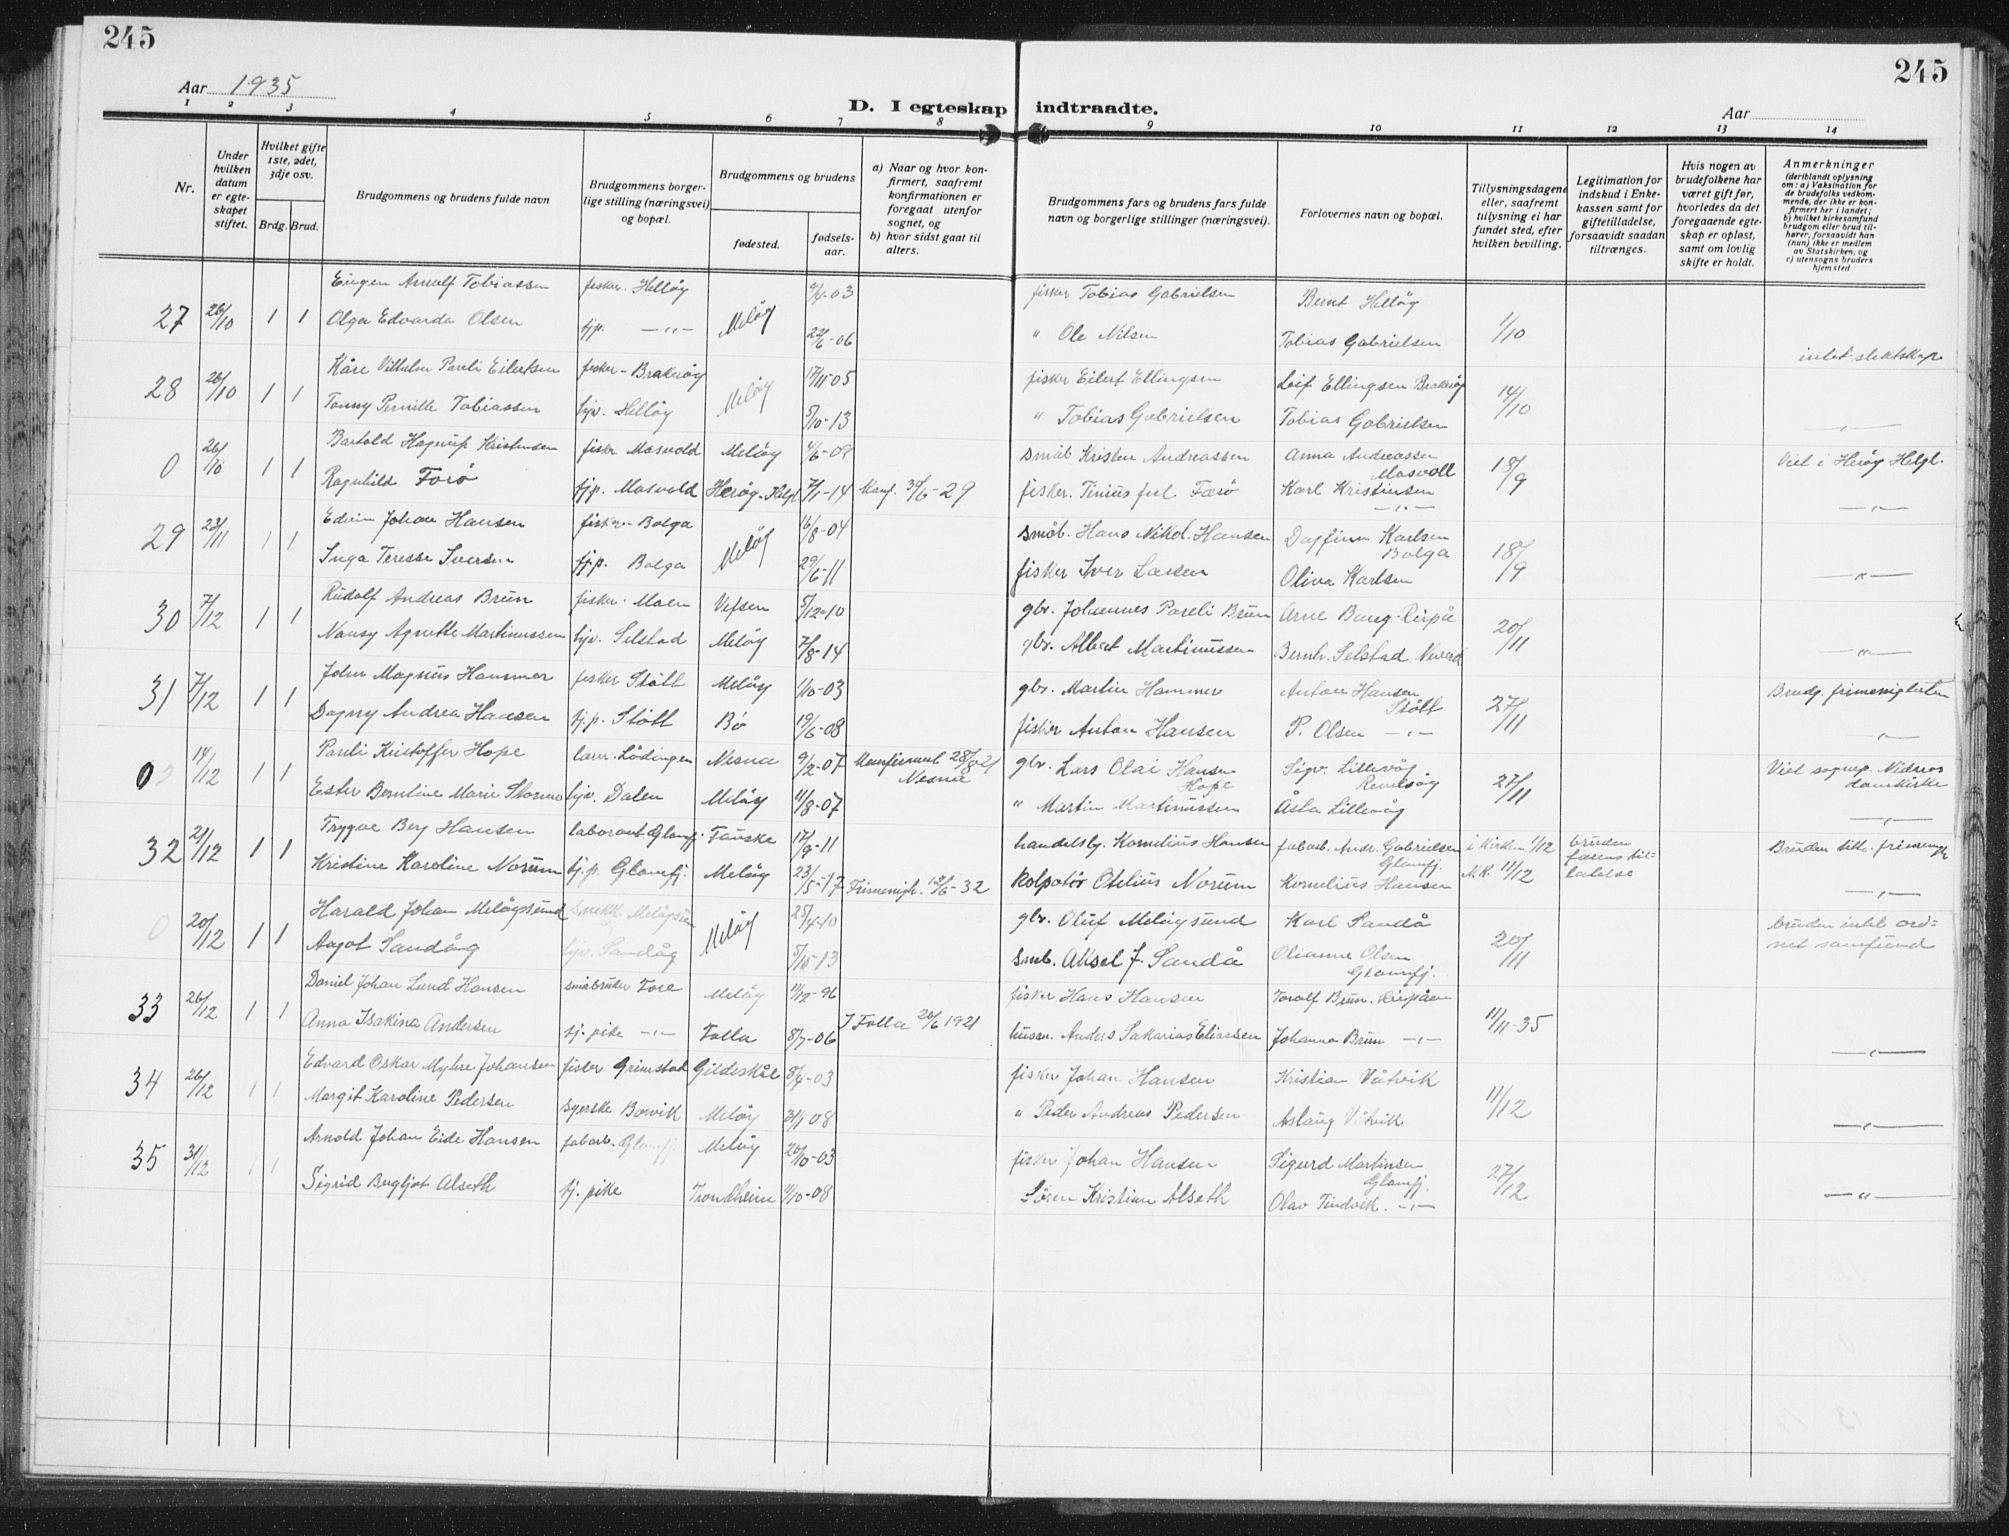 245
245
Aar 1935
D. I egteskap indtraadte.
Aar
1 2 3 4 5 6 7 8 9 10 11 12 13 14
Nr.
Under hvilken datum er egteskapet stiftet.
Hvilket gifte 1ste, 2det, 3dje osv.
Brdg. Brud.
Brudgommens og brudens fulde navn
Brudgommens borgerlige stilling (næringsvei) og bopæl.
Brudgommens og brudens
fødested.
fødselsaar.
a) Naar og hvor konfirmert, saafremt konfirmationen er foregaat utenfor sognet, og
b) hvor sidst gaat til alters.
Brudgommens fars og brudens fars fulde navn og borgerlige stillinger (næringsvei).
Forlovernes navn og bopæl.
Tillysningsdagene eller, saafremt tillysning ei har fundet sted, efter hvilken bevilling.
Legitimation for indskud i Enkekassen samt for giftetilladelse, forsaavidt saadan tiltrænges.
Hvis nogen av brudefolkene har været gift før, hvorledes da det foregaaende egteskap er opløst, samt om lovlig skifte er holdt.
Anmerkninger (deriblandt oplysning om: a) Vaksination for de brudefolks vedkommende, der ikke er konfirmert her i landet; b) hvilket kirkesamfund brudgom eller brud tilhører, forsaavidt han (hun) ikke er medlem av Statskirken, og c) utensogns bruders hjemsted
27 26/10 1 1 Eugen Arnulf Tobiassen fisker. Helløy Meløy 9/4-03 fisker Tobias Gabrielsen Bernt Helløy 1/10
Olga Edvarda Olsen tjp. —"— 22/6-06 " Ole Nilsen Tobias Gabrielsen intet slektskap
28 26/10 1 1 Kåre Vilhelm Pareli Eilertsen fisker - Brakøy Meløy 17/11-05 fisker Eilert Ellingsen Leif Ellingsen Brakøy 14/10
Tonny Pernille Tobiassen tjv. Helløy 5/10-13 " Tobias Gabrielsen Tobias Gabrielsen —"—
0 26/10 1 1 Bartold Hagerup Kristensen fisker Mosvold Meløy 4/6-09 småb Kristen Andreassen Anna Andreassen Mosvoll 18/9 Viet i Herøy Helgl.
Ragnhild Forø tjp. Mosvold Herøy-Helgl 7/1-14 Konf. 30/6-29 fisker. Tinius Færø Karl Kristensen —"— —"—
29 23/11 1 1 Edvin Johan Hansen fisker - Bolga Meløy 16/8-04 småb. Hans Nikol. Hansen Dagfinn Karlsen Bolga 18/9
Inga Teresse Iversen tj.p. Bolga 29/6-11 fisker Iver Larsen Oliva Karlsen —"—
30 7/12 1 1 Rudolf Andreas Brun fisker - Moen Vefsen 5/12-10 gbr. Johannes Pareli Brun Arne Bang-Reipå 20/11
Nansy Agnethe Martinussen tjv. Selstad Meløy 7/8-14 gbr. Albert Martinussen Bernh. Selstad Neverd —"—
31 7/12 1 1 John Magnus Hammer fisker Støtt Meløy 1/10-03 gbr. Martin Hammer Anton Hansen Støtt 27/11 Brudg. frimenigheten
Dagny Andrea Hansen tj.p. Støtt Bø 19/6-08 fisker Anton Hansen P. Olsen —"— —"—
0 14/12 1 1 Pareli Kristoffer Hope lærer. Lødingen Nesna 9/2-07 Konfirmert 28/8-21 Nesna gbr. Lars Olai Hansen Hope Sigv. Lillevåg 27/11 Viet sognep. Nidaros domkirke
Ester Berntine Marie Stormo tjv. Dalen Meløy 11/8-07 " Martin Martinussen Åsta Lillevåg —"—
32 21/12 1 1 Trygve Berg Hansen laborant-Glomfj. Fauske 17/9-11 handelsb. Kornelius Hansen fabarb. Andr. Gabrielsen Glomfj. i Kirken 1/12 bruden farens tillatelse Bruden tilh. frimenigh
Kristine Karoline Norum tj.p. Glomfj. Meløy 23/5-17 Frimenigh. 12/6-32 kolpotør Otelius Norum Kornelius Hansen M.K. 11/12 —"—
0 20/12 1 1 Harald Johan Meløysund snekk. Meløysun Meløy 25/4-10 gbr. Oluf Meløysund Karl Sandå 20/11 bruden intet ordnet samfund
Aagot Sandåg tjv. Sandåg 5/10-13 smb. Aksel J. Sandå Olianne Olsen Glomfj.
33 26/12 1 1 Daniel Johan Lund Hansen småbruker Fore Meløy 11/12-96 fisker Hans Hansen Toralf Brun. Reipåen 11/11-35
Anna Isakina Andersen tj. pike —"— Folla 8/7-06 I Folla 26/6 1921 husm. Anders Sakarias Eliassen Johanna Brun —"— —"—
34 26/12 1 1 Edvard Oskar Myhre Johansen fisker Grimstad Gildeskål 8/4-03 fisker Johan Hansen Kristian Våtvik 11/12
Margit Karoline Pedersen syerske Bosvik Meløy 31/1 08 " Peder Andreas Pedersen Aslaug Våtvik —"—
35 31/12 1 1 Arnold Johan Eide Hansen fabarb. Glomfj. Meløy 20/10-03 fisker Johan Hansen Sigurd Martinsen Glomfj. 27/12
Sigrid Bergljot Alseth tj. pike Trondheim 11/10-08 Søren Kristian Alseth Olav Tindvik. —"— —"—